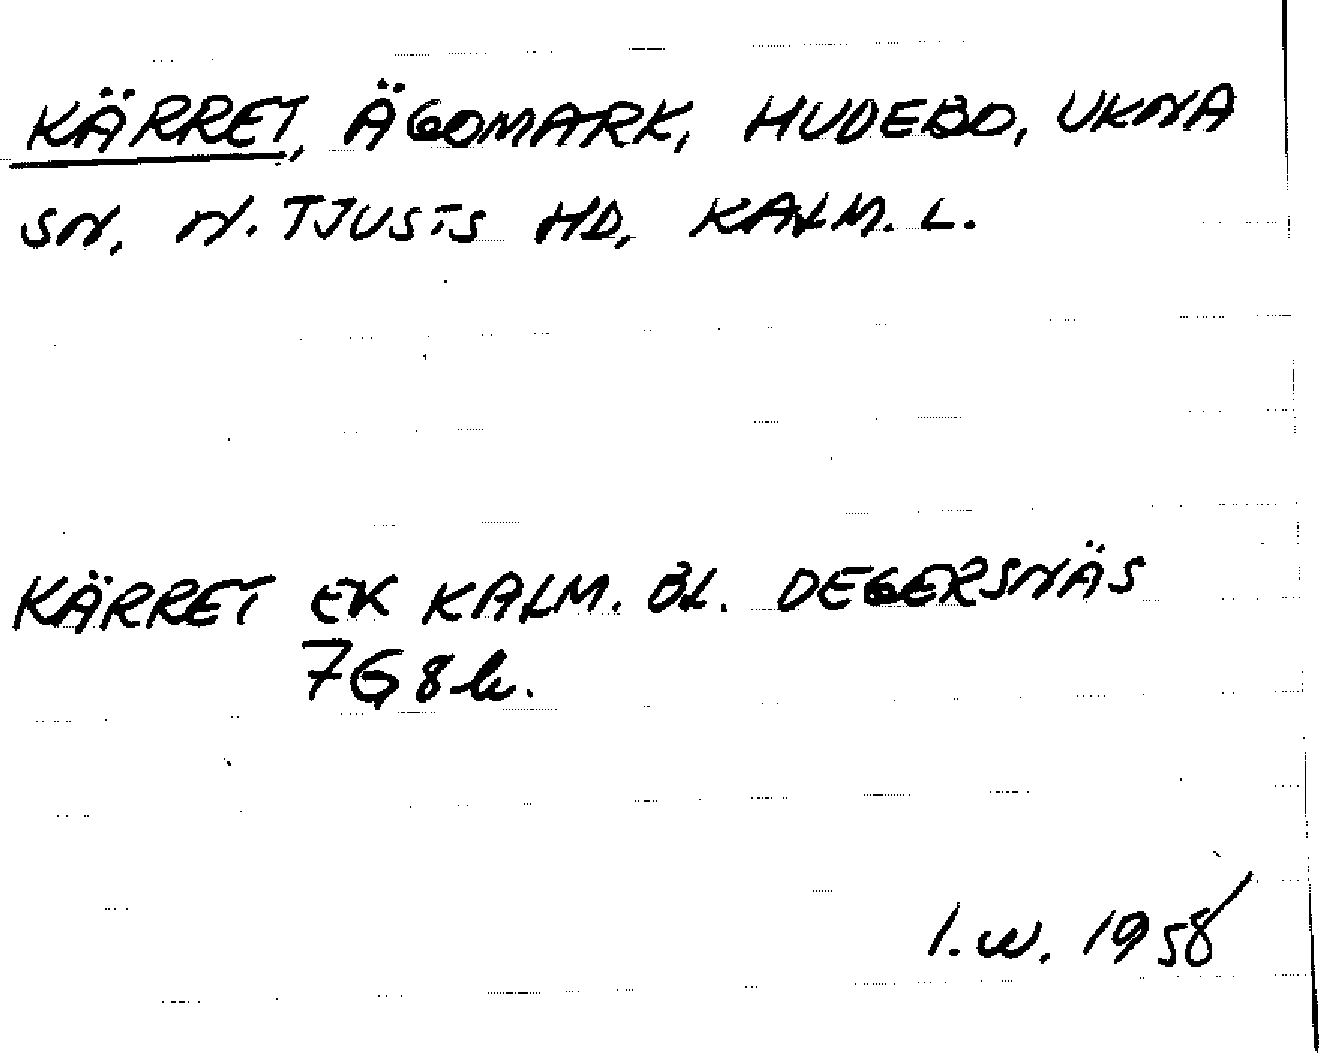 KÄRRET, ÄGOMARK, HUDEBO, UKNA
SN, N. TJUSTS HD, KALM. L.
KÄRRET EK KALM. BL. DEGERSNÄS
7G8h.
I.W. 1958